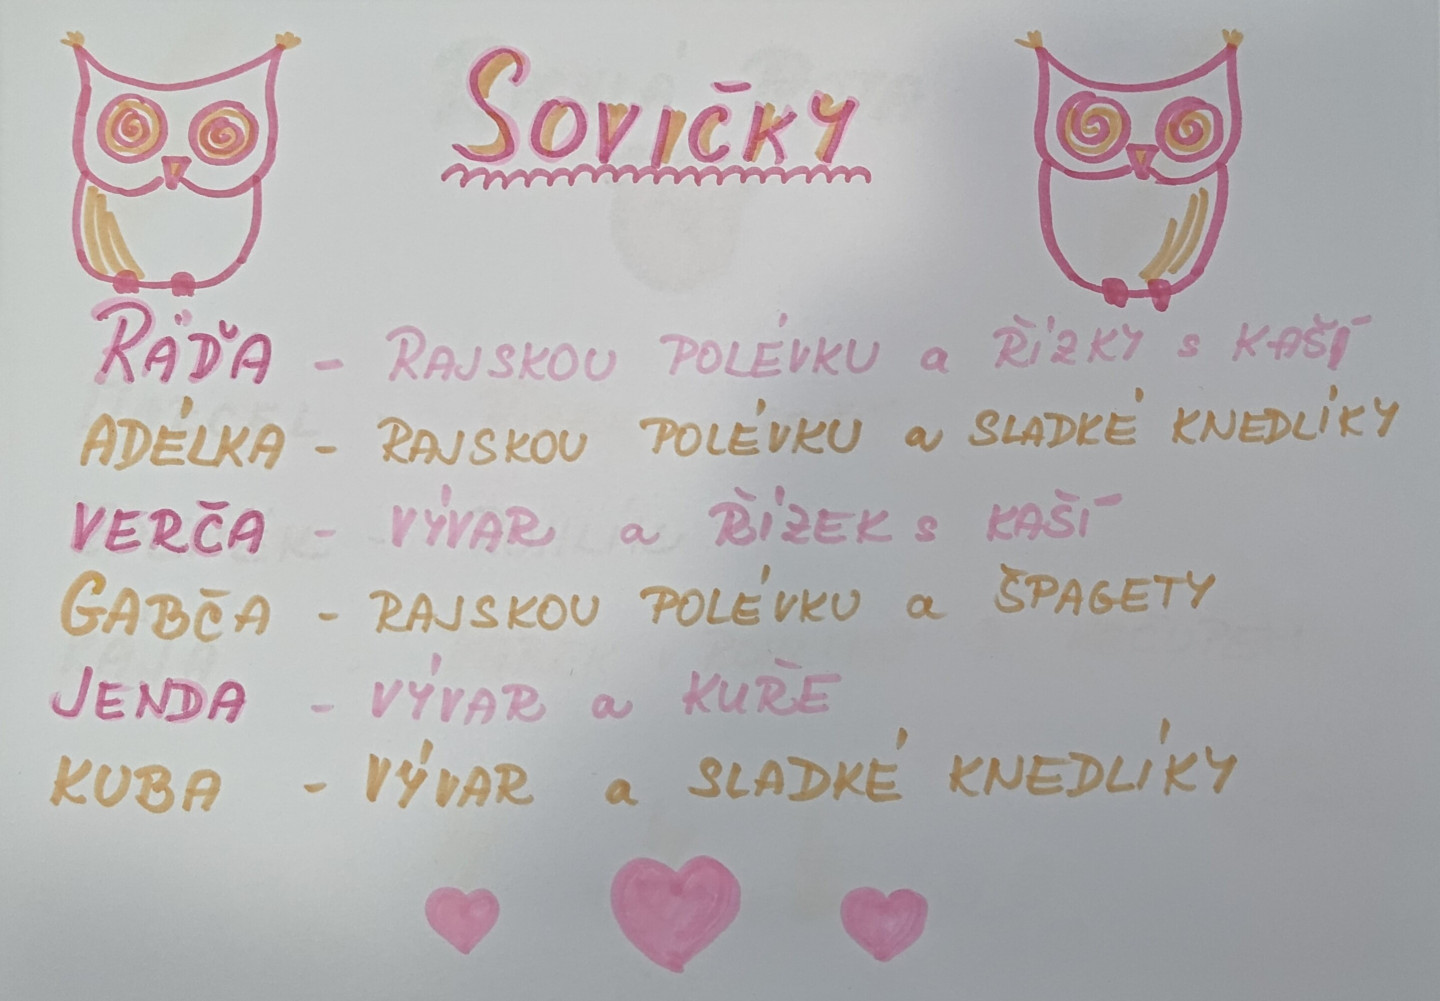 SOVIČKY
RÁĎA - RAJSKOU POLÉVKU a ŘÍZKY s KAŠÍ
ADÉLKA - RAJSKOU POLÉVKU a SLADKÉ KNEDLÍKY
VERČA - VÝVAR a ŘÍZEK s KAŠÍ
GABČA - RAJSKOU POLÉVKU a ŠPAGETY
JENDA - VÝVAR a KUŘE
KUBA - VÝVAR a SLADKÉ KNEDLÍKY